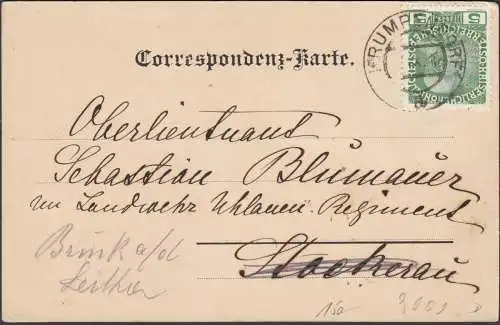 Correspondenz-Karte.
5 5
KRUMPENDORF
Oberlieutnant
Sebastian Blumauer
im Landwehr Uhlanen-Regiment
Stockerau
Bruck a/d
Leitha
150